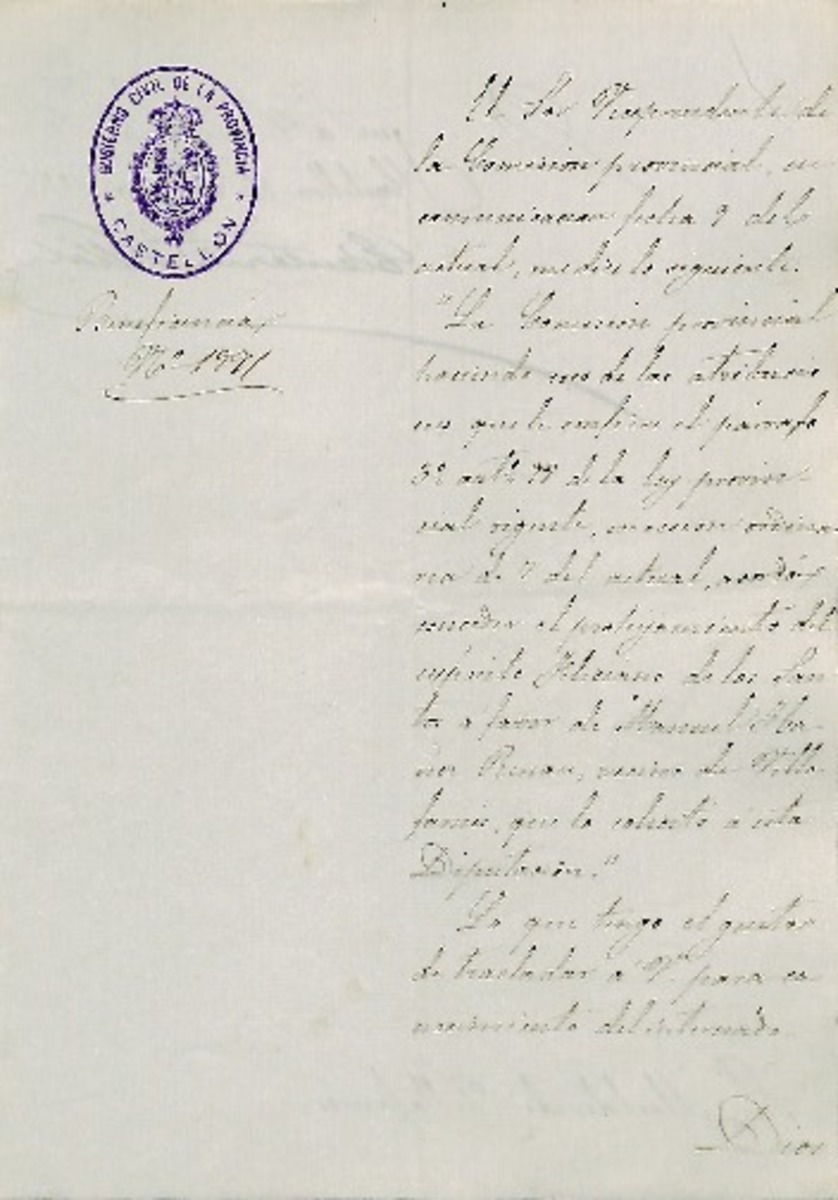 GOBIERNO CIVIL DE LA PROVINCIA
* CASTELLÓN *
Beneficencia
Nº 1991
El Sor Vicepresidente de
la Comisión provincial, en
comunicacion fecha 9 del
actual, me dice lo siguiente.
"La Comisión provincial
haciendo uso de las atribucio
nes que le confiere el párrafo
3º artº 98 de la ley provin-
cial vigente, en sesion ordina-
ria de 7 del actual, acordó
conceder el prohijamiento del
expósito Feliciano de los San
tos a favor de Manuel
vecino de Villa-
famés, que lo solicitó á esta
Diputación."
Lo que tengo el gusto
de trasladar a V. para co
nocimiento del interesado.
Dios